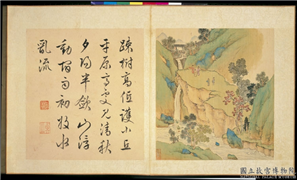 疎樹高低護小丘
平原高清秋
夕陽半斂山浮
動雨初收水
亂流
國立故宮博物院